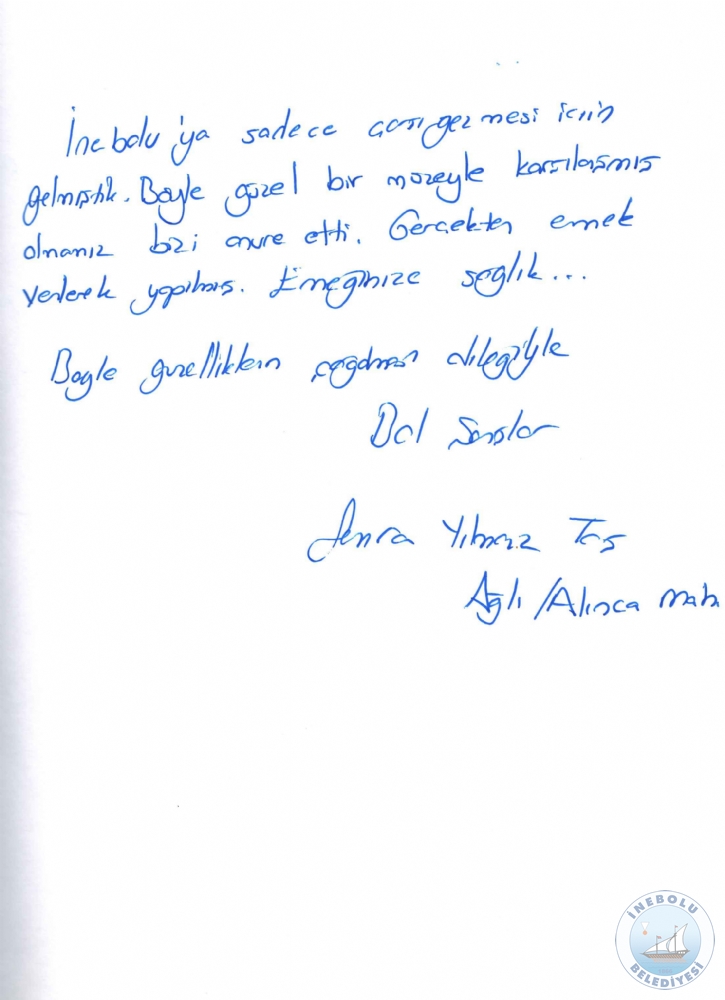 İnebolu'ya sadece gezmesi için
gelmiştik. Böyle güzel bir müzeyle karşılaşmış
olmamız bizi onure etti. Gerçekten emek
verilerek yapılmış. Emeğinize sağlık...
Böyle güzelliklerin çoğalması dileğiyle
Yılmaz Taş
Ağlı / Alınca mah
İNEBOLU
BELEDİYESİ